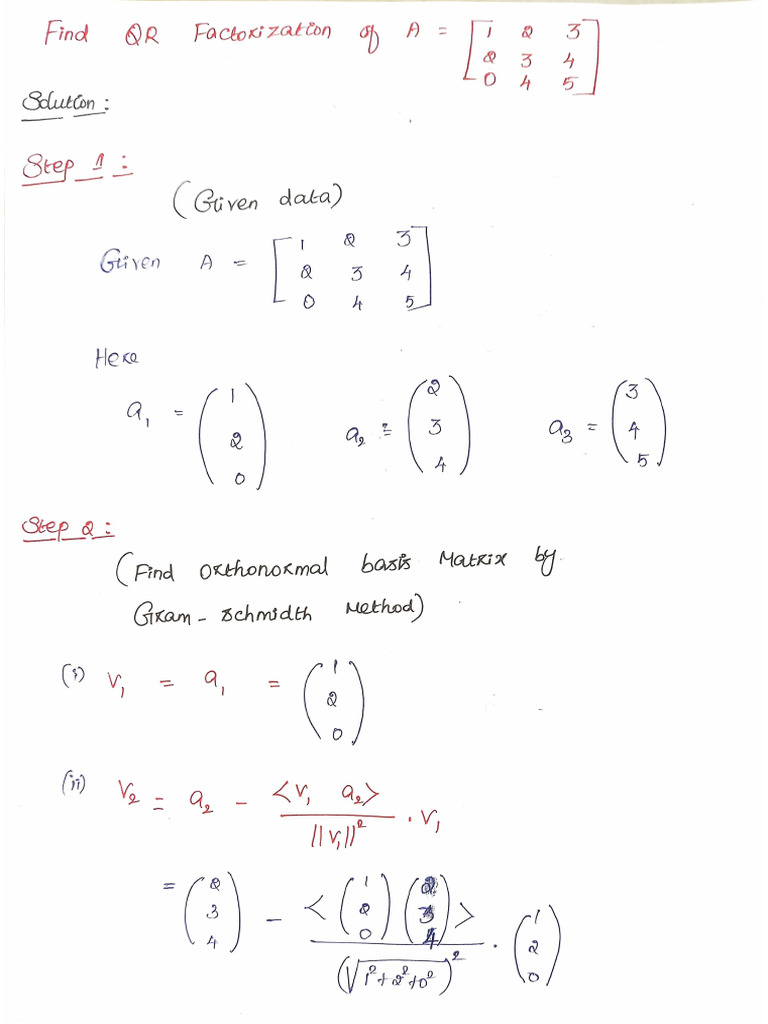 Find QR Factorization of A = [1 2 3
2 3 4
0 4 5]
Solution:
Step 1:
(Given data)
Given A = [1 2 3
2 3 4
0 4 5]
Here
a₁ = (1 2 0) a₂ = (2 3 4) a₃ = (3 4 5)
Step 2:
(Find orthonormal basis Matrix by
Gram - Schmidth Method)
(i) v₁ = a₁ = (1 2 0)
(ii) v₂ = a₂ - <v₁ a₂> / ||v₁||² . v₁
= (2 3 4) - <(1 2 0) (2 3 4)> / (√1²+2²+0²)² . (1 2 0)